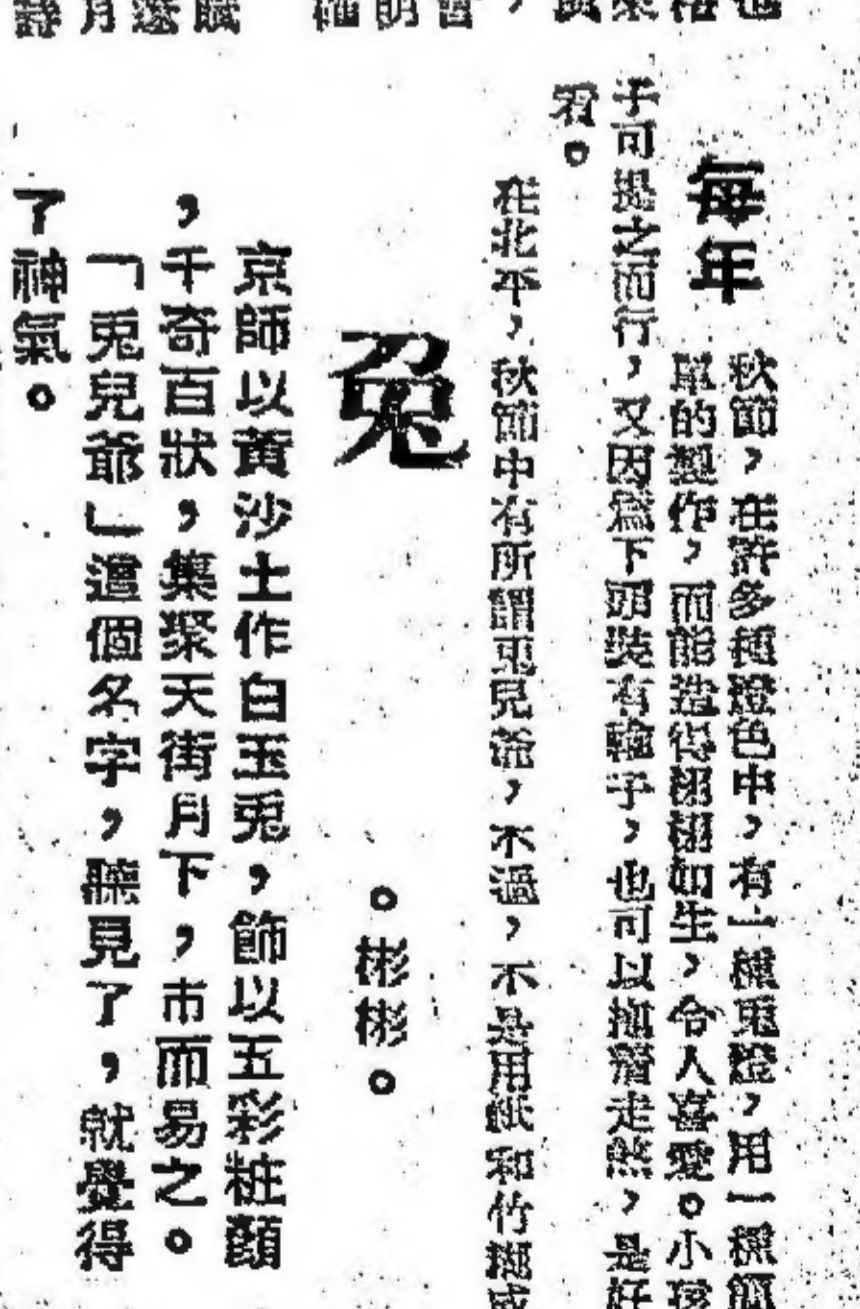 每年
秋節，在許多種燈色中，有一種兎燈，用一種簡
單的製作，而能造得栩栩如生，令人喜愛。小孩
子可提之而行，又因爲下頭裝有輪子，也可以拖着走㷊，是好
看。
在北平，秋節中有所謂兎兒爺，不過，不是用紙和竹撕成
兔
。彬彬。
京師以黃沙土作白玉兎，飾以五彩粧顏
，千奇百狀，集聚天街月下，市而易之。
「兎兒爺」這個名字，聽見了，就覺得
了神氣。